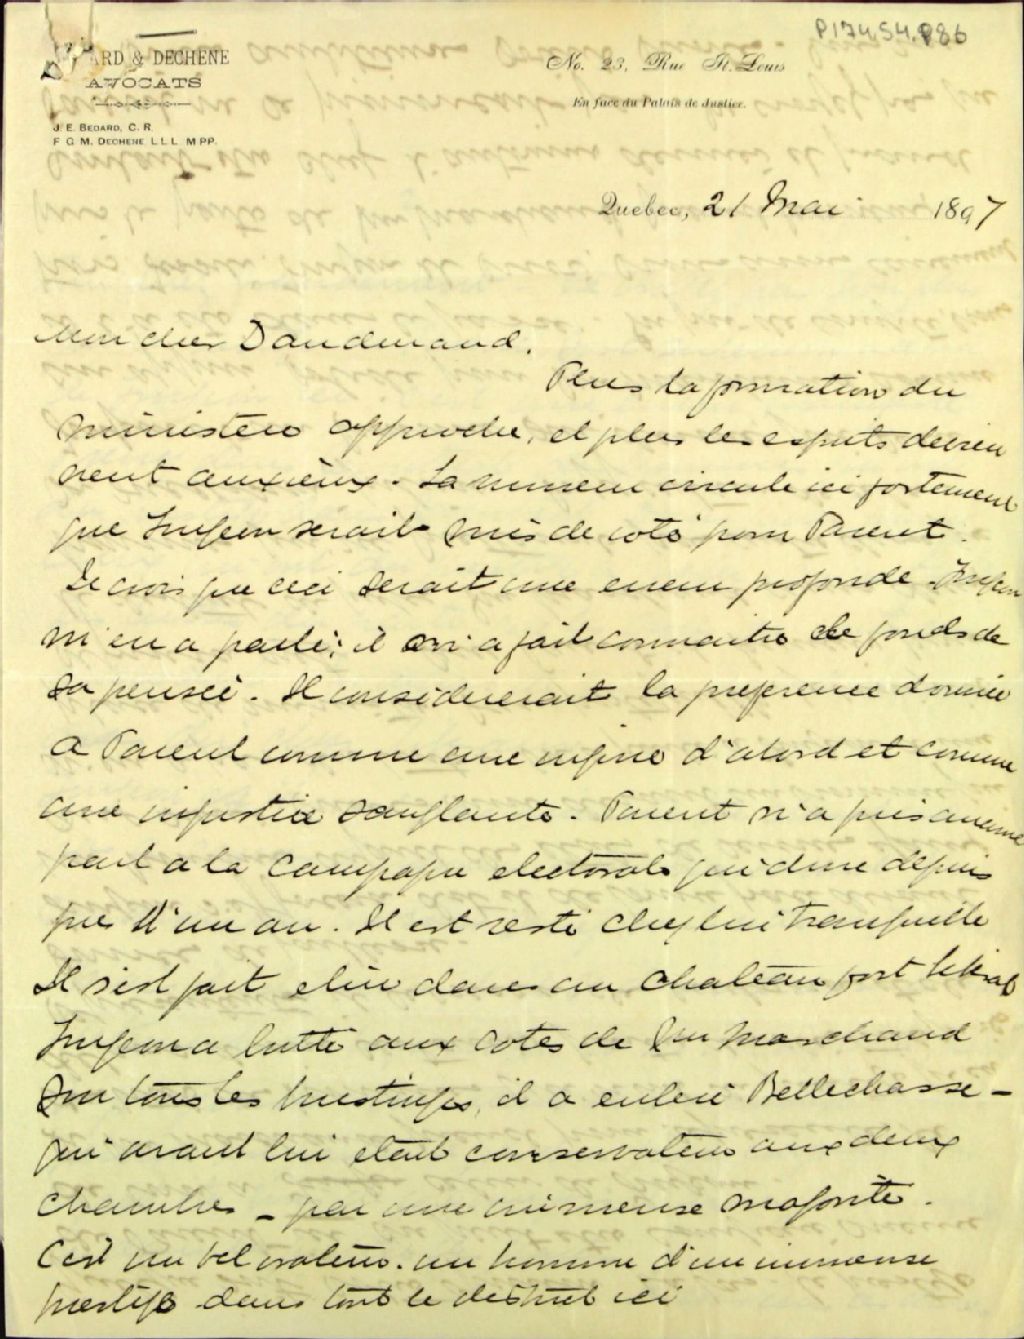 P174,S4,P86
ARD & DECHENE
AVOCATS
J. E. BEDARD, C. R.
F. G. M. DECHENE L.L.L. M.PP.
No. 23, Rue St. Louis
En face du Palais de Justice.
Quebec, 21 Mai 1897
Mon cher Dandurand.
Plus la formation du
ministère approche, et plus les esprits devien
nent anxieux. La rumeur circule ici fortement
que Turgeon serait mis de coté pour Parent.
Je crois que ceci serait une erreur profonde. Turgeon
m'en a parlé; il m'a fait connaitre le fonds de
sa pensée. Il considererait la preference donnée
a Parent comme une injure d'abord et comme
une injustice sanglante. Parent n'a pris aucune
part a la campagne electorale qui dure depuis
pres d'un an. Il est resté chez lui tranquille
Il s'est fait elire dans un chateau fort liberal
Turgeon a lutté aux cotés de Mr Marchand
sur tous les hustings, il a enlevé Bellechasse -
qui avant lui etait conservateur aux deux
chambres - par une immense majorité.
C'est un bel orateur. un homme d'un immense
prestige dans tout le district ici